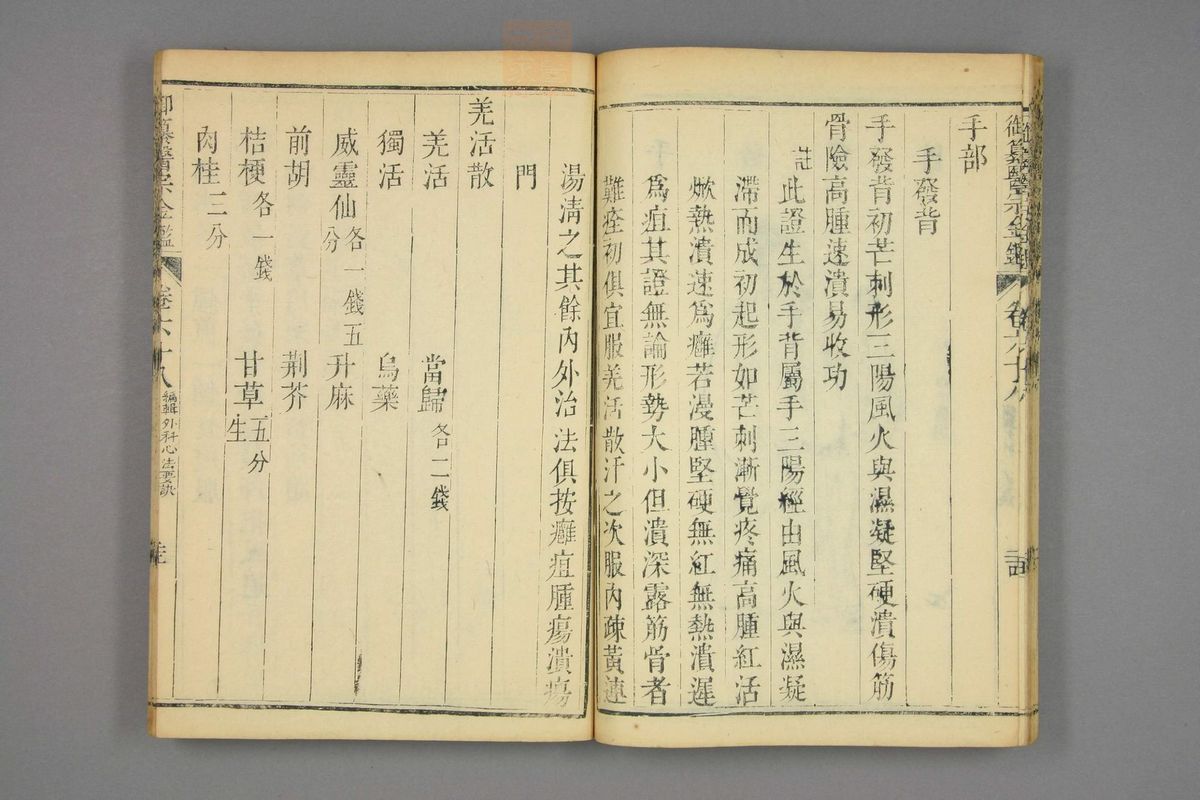 御纂醫宗金鑑 卷六十八
手部
手發背
手發背初芒刺形三陽風火與濕凝堅硬潰傷筋
骨險高腫速潰易收功
註此證生於手背屬手三陽經由風火與濕凝
滯而成初起形如芒刺漸覺疼痛高腫紅活
焮熱潰速為癰若漫腫堅硬無紅無熱潰遲
為疽其證無論形勢大小但潰深露筋骨者
難痊初俱宜服羌活散汗之次服內疎黃連
湯清之其餘內外治法俱按癰疽腫瘍潰瘍
門
羌活散
羌活 當歸各二錢
獨活 烏藥
威靈仙各一錢五分 升麻
前胡 荆芥
桔梗各一錢 甘草生五分
肉桂三分
御纂醫宗金鑑 卷六十八 編輯外科心法要訣